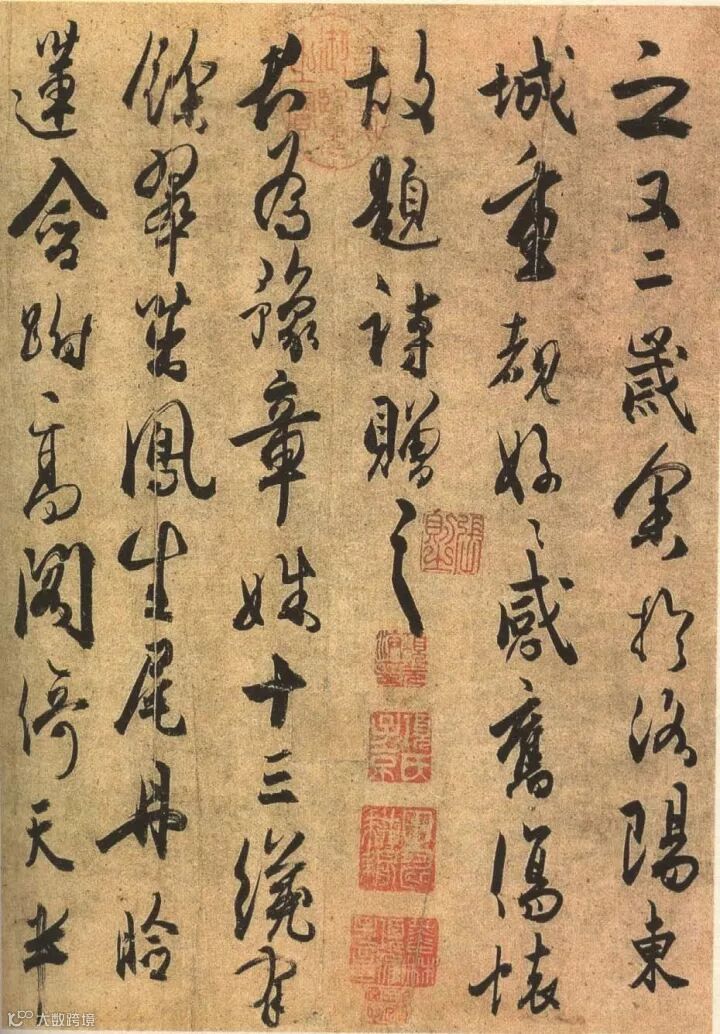 之又二歲余於洛陽東
城重覩好〻感舊傷懷
故題詩贈之
君為豫章姝十三纔有
餘翠茁鳳生尾丹臉
蓮含跗高閣倚天半
大数跨境